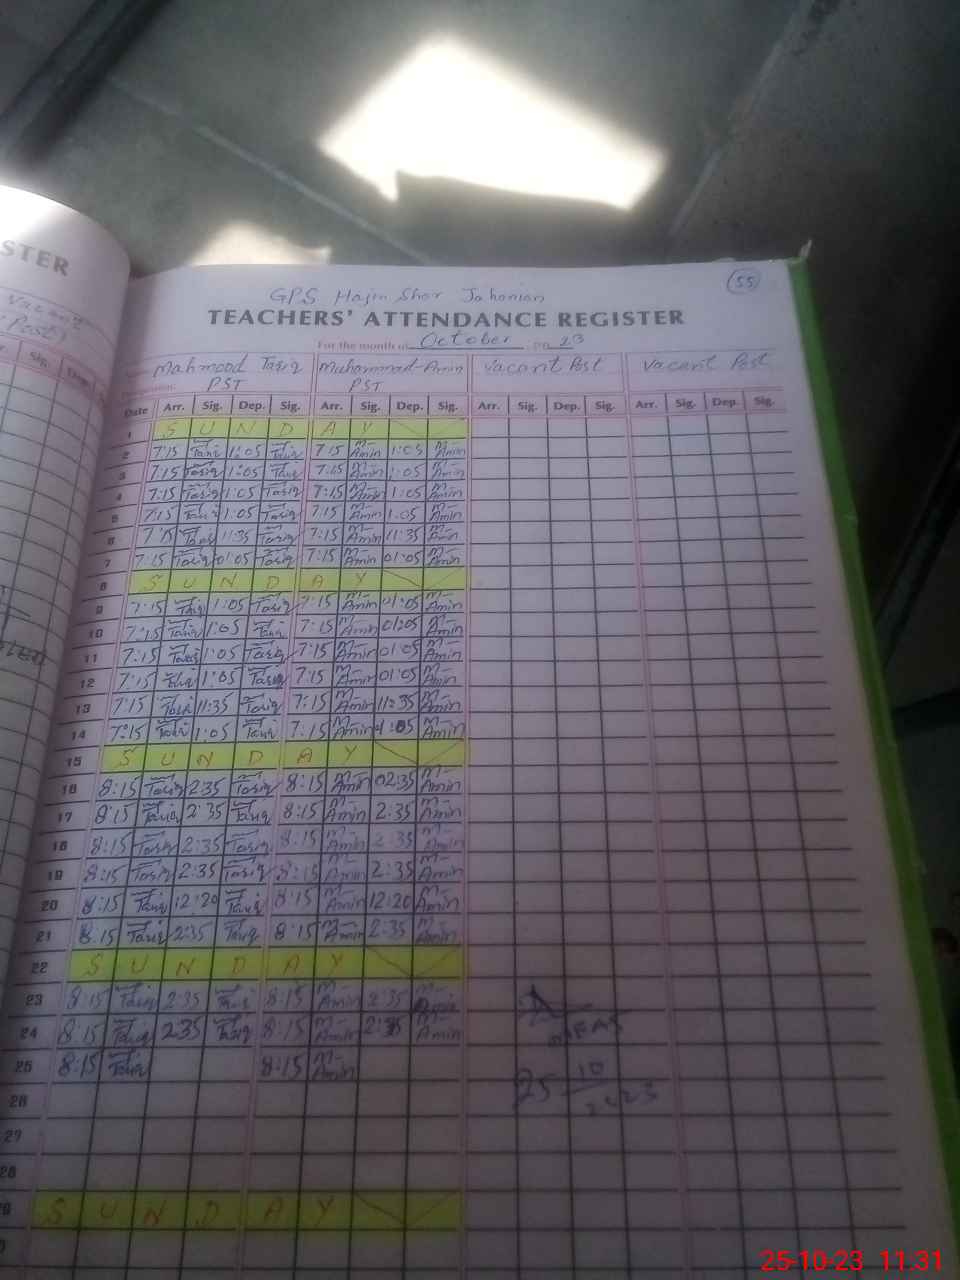 STER
Vacant
Post)
Sig.
55
GPS Hajin Sher Jahanian
TEACHERS' ATTENDANCE REGISTER
For the month of October 23
Mahmood Tariq Muhammad Amin Vacant Post Vacant Post
PST PST
Date Arr. Sig. Dep. Sig. Arr. Sig. Dep. Sig. Arr. Sig. Dep. Sig. Arr. Sig. Dep. Sig.
1 S U N D A Y
2 7:15 Tariq 1:05 Tariq 7:15 M-Amin 1:05 M-Amin
3 7:15 Tariq 1:05 Tariq 7:15 M-Amin 1:05 M-Amin
4 7:15 Tariq 1:05 Tariq 7:15 M-Amin 1:05 M-Amin
5 7:15 Tariq 1:05 Tariq 7:15 M-Amin 1:05 M-Amin
6 7:15 Tariq 11:35 Tariq 7:15 M-Amin 11:35 M-Amin
7 7:15 Tariq 01:05 Tariq 7:15 M-Amin 01:05 M-Amin
8 S U N D A Y
9 7:15 Tariq 1:05 Tariq 7:15 M-Amin 01:05 M-Amin
10 7:15 Tariq 1:05 Tariq 7:15 M-Amin 01:05 M-Amin
11 7:15 Tariq 1:05 Tariq 7:15 M-Amin 01:05 M-Amin
12 7:15 Tariq 1:05 Tariq 7:15 M-Amin 01:05 M-Amin
13 7:15 Tariq 11:35 Tariq 7:15 M-Amin 11:35 M-Amin
14 7:15 Tariq 1:05 Tariq 7:15 M-Amin 1:05 M-Amin
15 S U N D A Y
16 8:15 Tariq 2:35 Tariq 8:15 M-Amin 02:35 M-Amin
17 8:15 Tariq 2:35 Tariq 8:15 M-Amin 2:35 M-Amin
18 8:15 Tariq 2:35 Tariq 8:15 M-Amin 2:35 M-Amin
19 8:15 Tariq 2:35 Tariq 8:15 M-Amin 2:35 M-Amin
20 8:15 Tariq 12:20 Tariq 8:15 M-Amin 12:20 M-Amin
21 8:15 Tariq 2:35 Tariq 8:15 M-Amin 2:35 M-Amin
22 S U N D A Y
23 8:15 Tariq 2:35 Tariq 8:15 M-Amin 2:35 M-Amin
24 8:15 Tariq 2:35 Tariq 8:15 M-Amin 2:35 M-Amin
25 8:15 Tariq 8:15 M-Amin
MEAS
25 10 2023
26
27
28
29 S U N D A Y
25-10-23 11.31